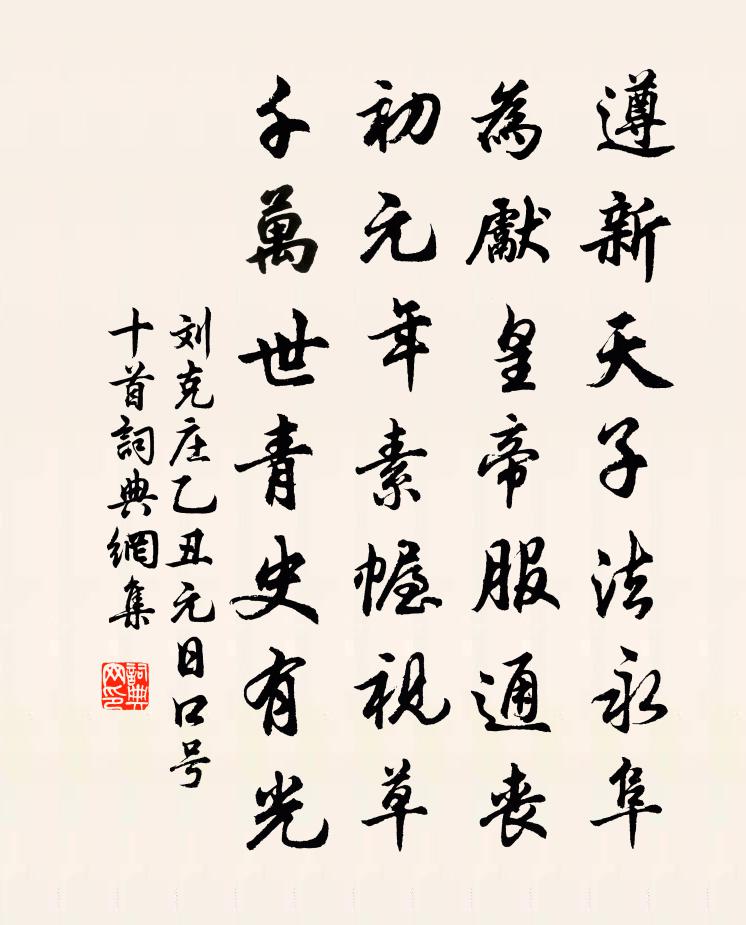 遵新天子法永阜
為獻皇帝服通喪
初元年素幄視草
千萬世青史有光
刘克庄乙丑元日口号
十首詞典網集
詞典网印